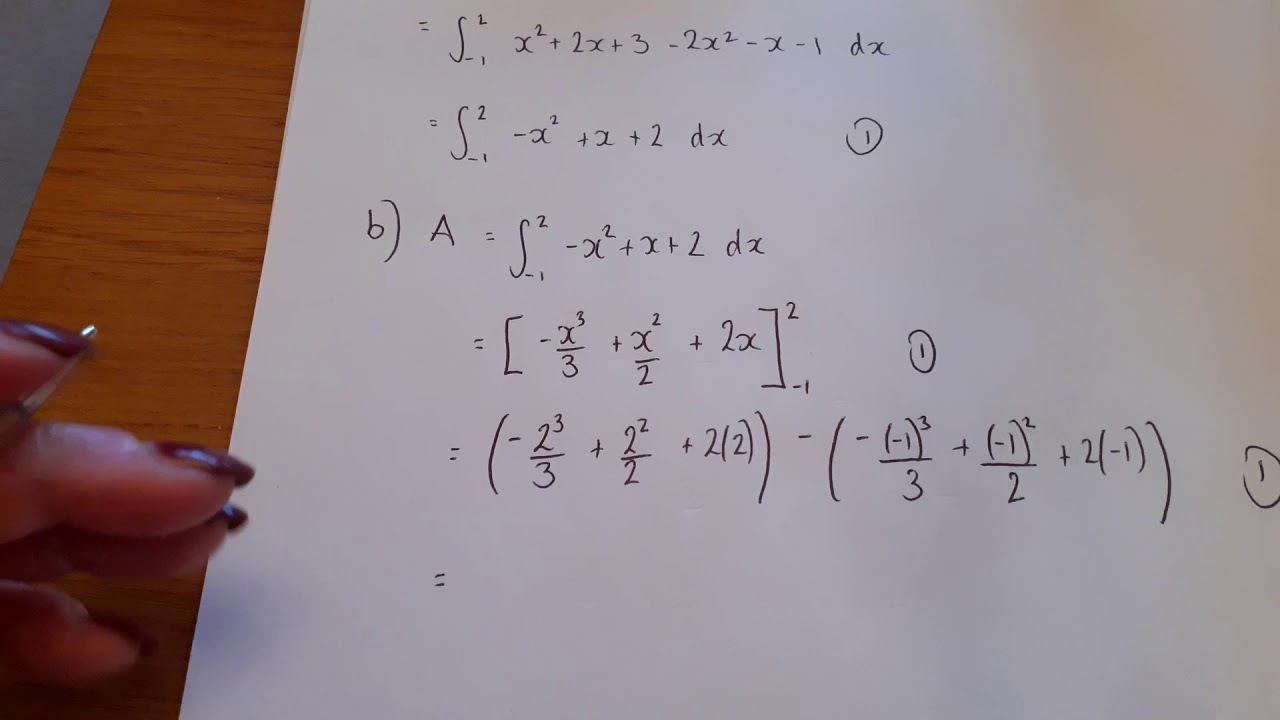 = ∫₋₁² x² + 2x + 3 - 2x² - x - 1 dx
= ∫₋₁² -x² + x + 2 dx ①
b) A = ∫₋₁² -x² + x + 2 dx
= [ -x³/3 + x²/2 + 2x ]₋₁² ①
= ( -2³/3 + 2²/2 + 2(2) ) - ( -(-1)³/3 + (-1)²/2 + 2(-1) ) ①
=